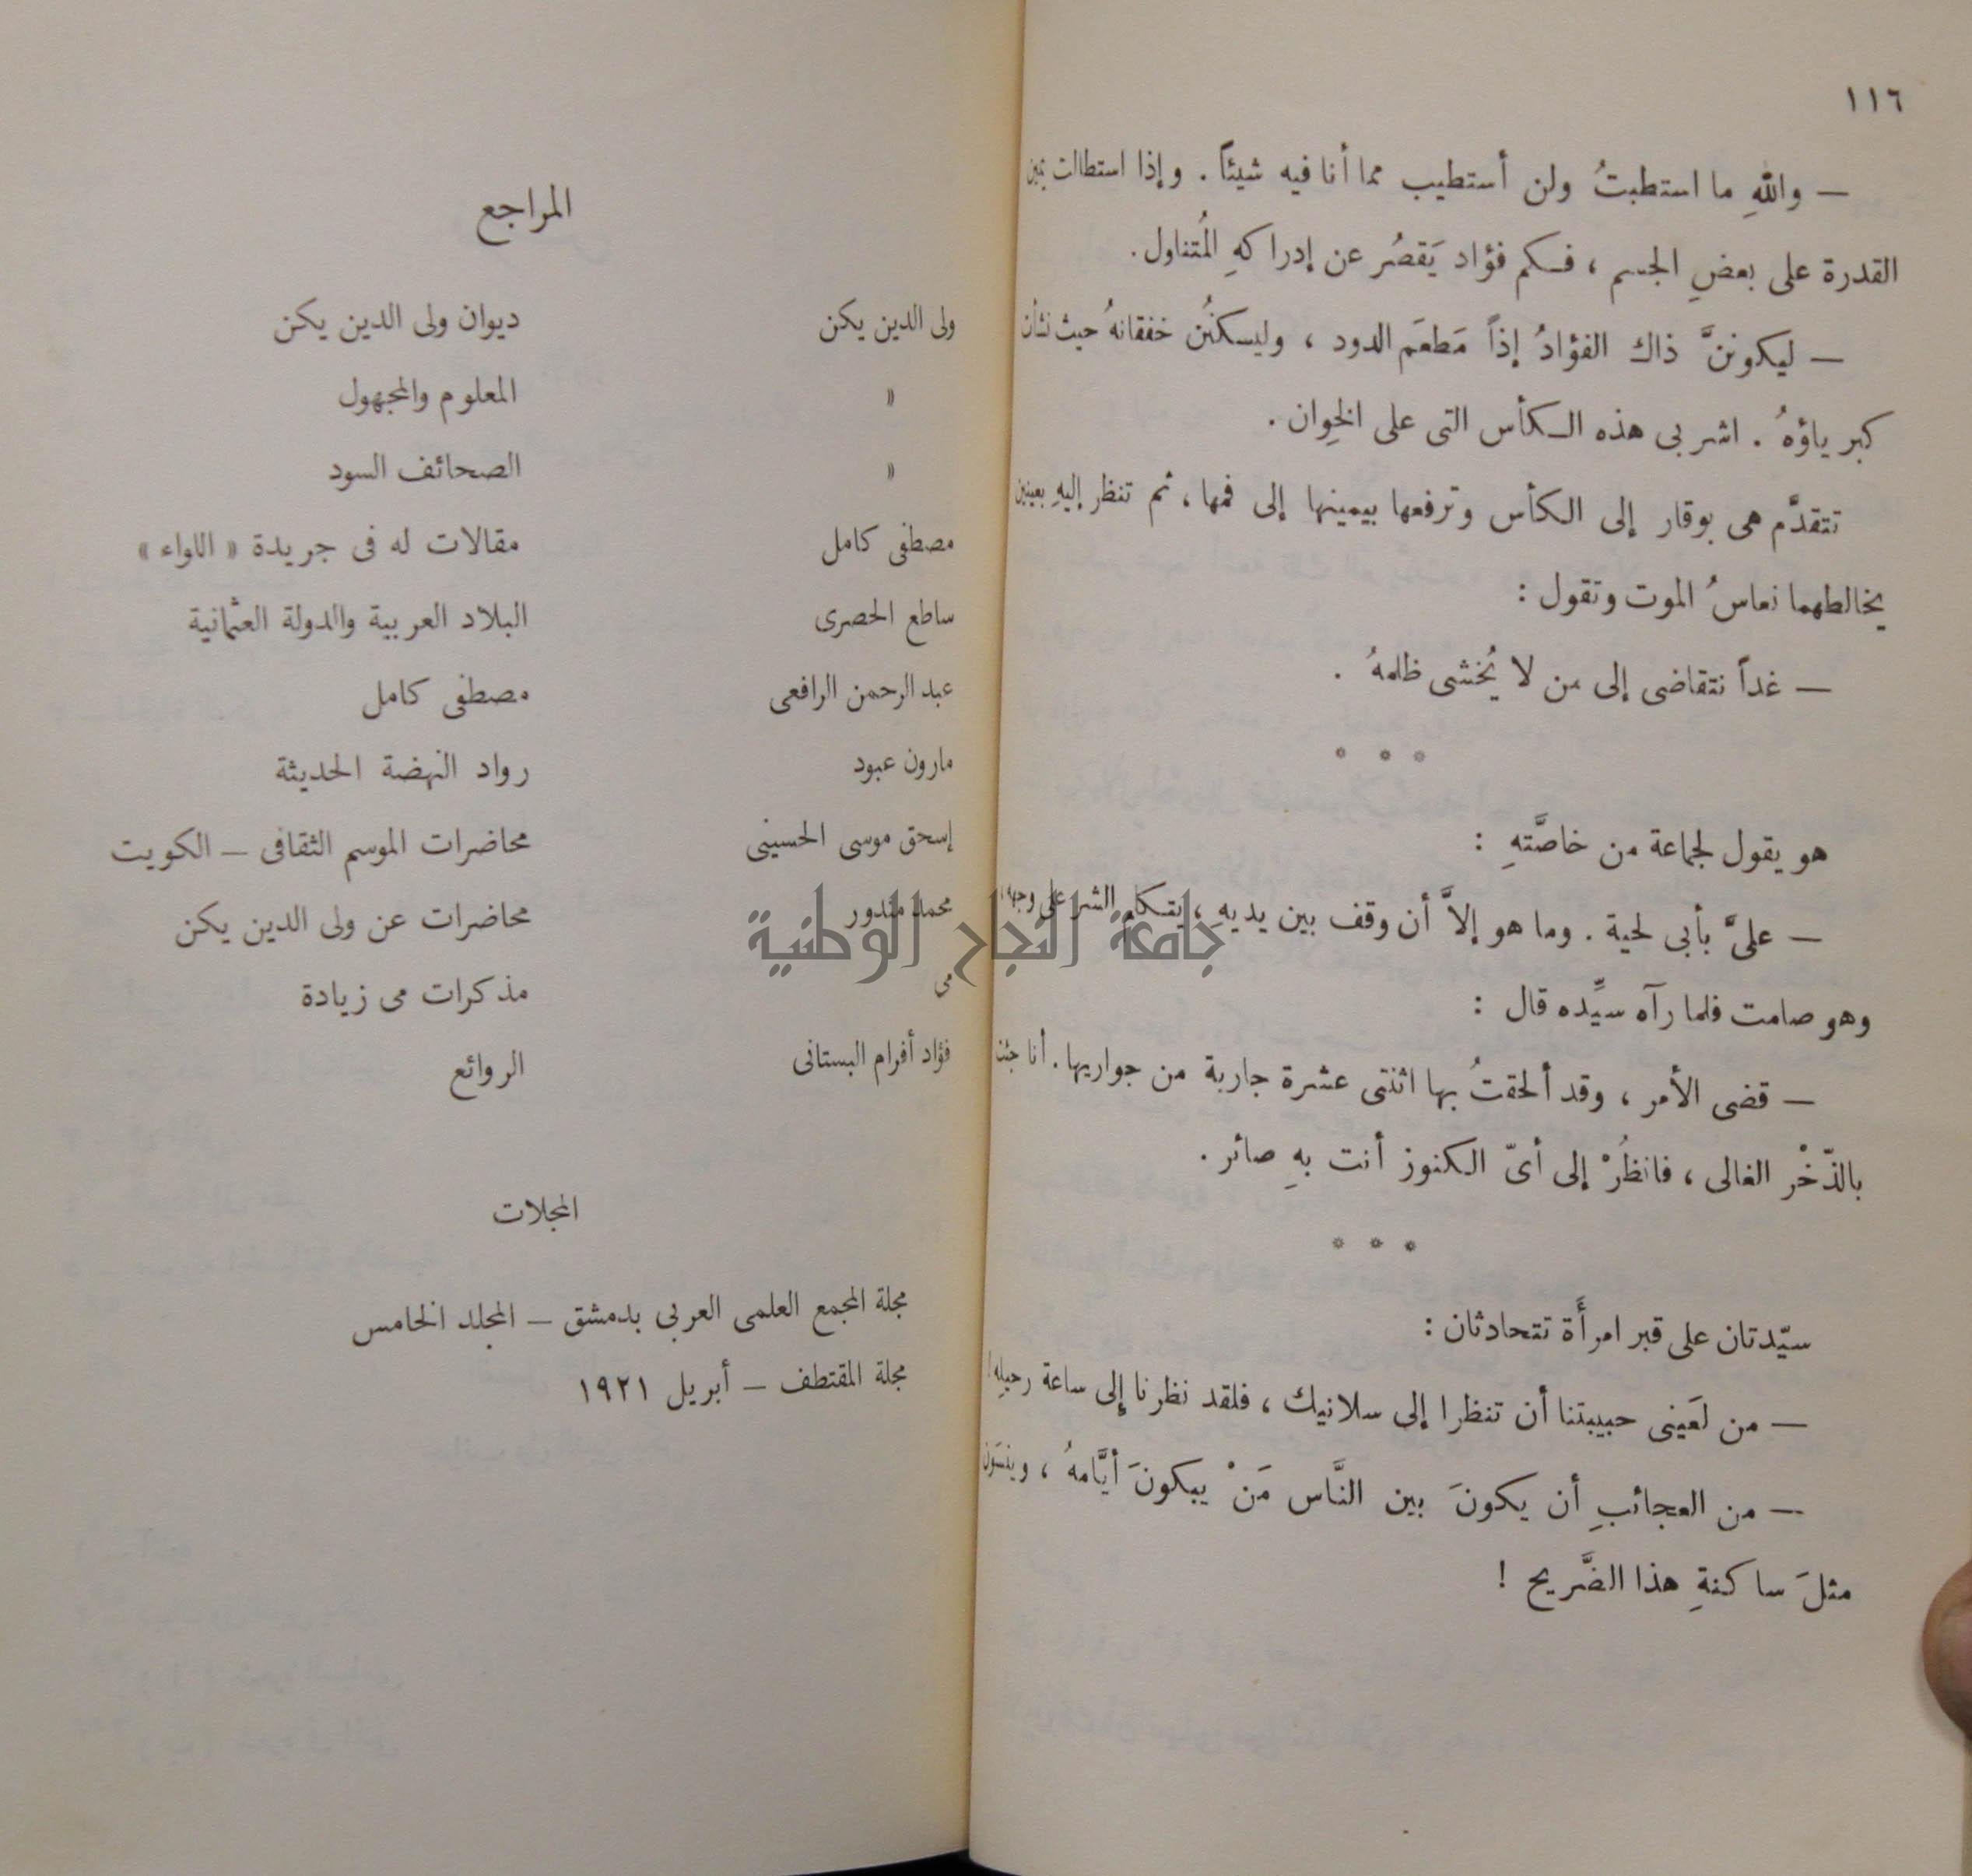 ١١٦
— واللهِ ما استطبتُ ولن أستطيب مما أنا فيه شيئاً . وإذا استطالت يمين
القدرة على بعضِ الجسم ، فكم فؤاد يَقصُر عن إدراكهِ المُتناول .
— ليكوننَّ ذاك الفؤادُ إذاً مَطعَم الدود ، وليسكنُن خفقانهُ حيث
كبرياؤهُ . اشربى هذه الكأس التى على الخِوان .
تتقدَّم هى بوقار إلى الكأس وترفعها بيمينها إلى فمها ، ثم تنظر إليهِ بعينين
يخالطهما نعاسُ الموت وتقول :
— غداً نتقاضى إلى من لا يُخشى ظلمهُ .
* * *
هو يقول لجماعة من خاصَّتهِ :
— علىَّ بأبى لحية . وما هو إلاَّ أن وقف بين يديهِ ، يتكلم الشر على وجهه
وهو صامت فلما رآه سيِّده قال :
— قضى الأمر ، وقد ألحقتُ بها اثنتى عشرة جارية من جواريها . أنا جئت
بالذّخْر الغالى ، فانظُرْ إلى أىّ الكنوز أنت بهِ صائر .
* * *
سيّدتان على قبر امرأَة تتحادثان :
— من لعَينى حبيبتنا أن تنظرا إلى سلانيك ، فلقد نظرنا إلى ساعة رحيلِه !
— من العجائبِ أن يكونَ بين النَّاس مَنْ يبكونَ أيَّامهُ ، وينسَون
مثلَ ساكنةِ هذا الضَّريح !
المراجع
ولى الدين يكن ديوان ولى الدين يكن
» المعلوم والمجهول
» الصحائف السود
مصطفى كامل مقالات له فى جريدة « اللواء »
ساطع الحصرى البلاد العربية والدولة العثمانية
عبد الرحمن الرافعى مصطفى كامل
مارون عبود رواد النهضة الحديثة
إسحق موسى الحسينى محاضرات الموسم الثقافى — الكويت
محمد مندور محاضرات عن ولى الدين يكن
مى مذكرات مى زيادة
فؤاد أفرام البستانى الروائع
المجلات
مجلة المجمع العلمى العربى بدمشق — المجلد الخامس
مجلة المقتطف — أبريل ١٩٢١
جامعة النجاح الوطنية